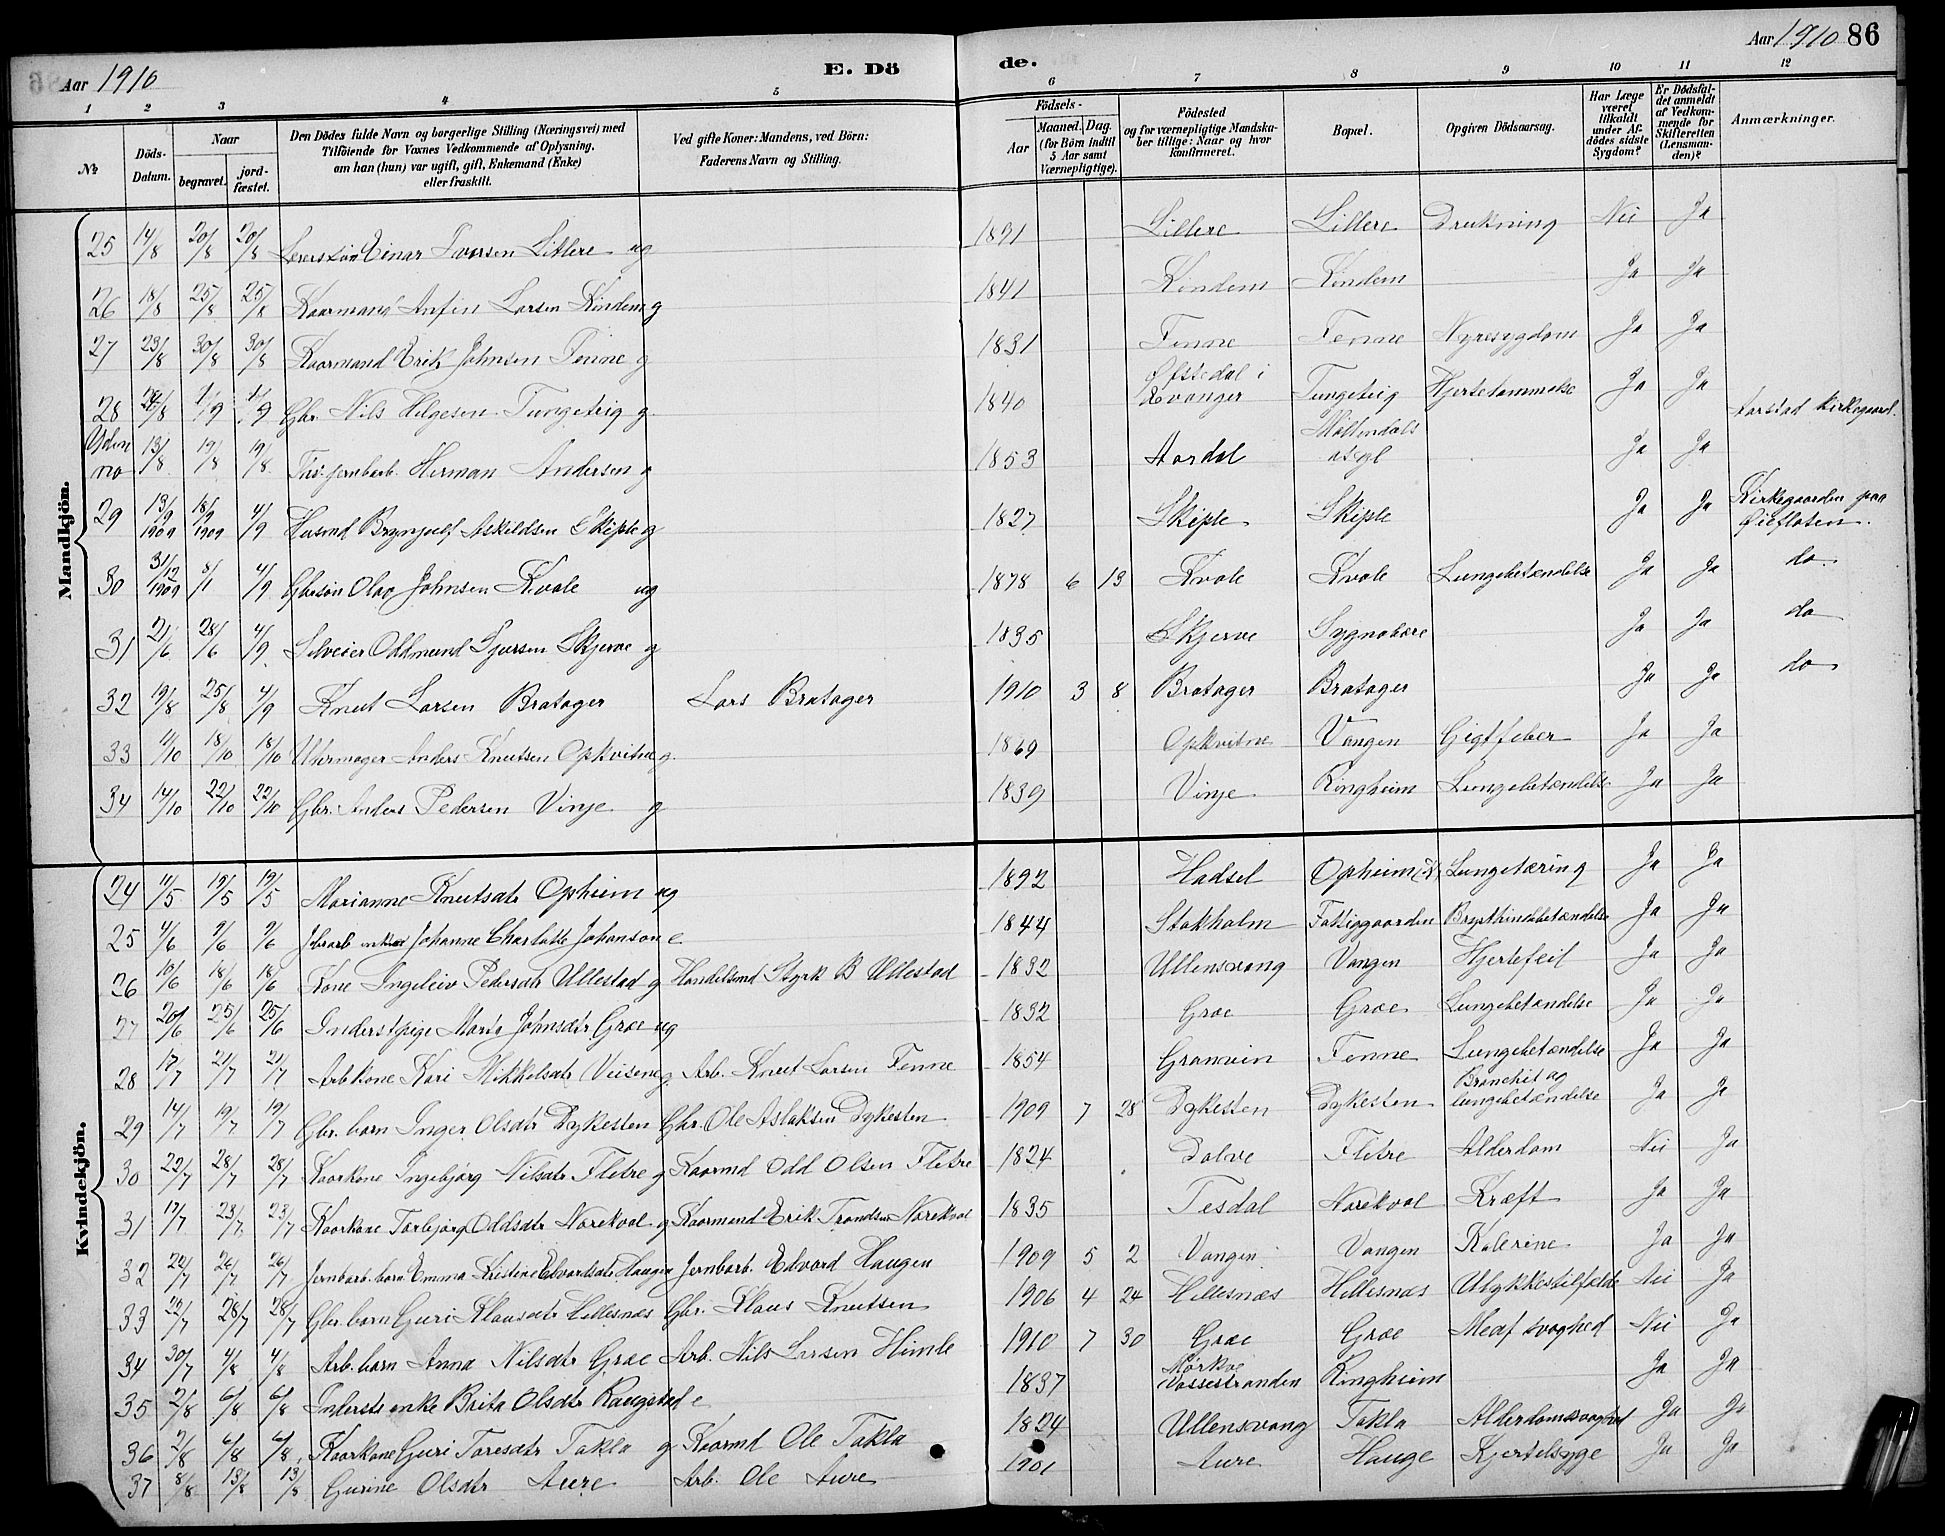 Aar 1910 E. Dö de. Aar 1910 86
1 2 3 4 5 6 7 8 9 10 11 12
№ Döds-Datum. Naar begravet. jord-fæstet. Den Dödes fulde Navn og borgerlige Stilling (Næringsvei) med Tilföiende for Voxnes Vedkommende af Oplysning, om han (hun) var ugift, gift, Enkemand (Enke) eller fraskilt. Ved gifte Koner: Mandens, ved Börn: Faderens Navn og Stilling. Födsels- Aar Maaned. Dag. (for Börn indtil 5 Aar samt Værnepligtige). Födested og for værnepligtige Mandska-ber tillige: Naar og hvor konfirmeret. Bopæl. Opgiven Dödsaarsag. Har Læge været tilkaldt under Af-dödes sidste Sygdom? Er Dödsfal-det anmeldt af Vedkom-mende for Skifteretten (Lensman-den)? Anmærkninger.
Mandkjön.
25 14/8 20/8 20/8 Einar Iversen Lillere ug 1891 Lillere Lillere Drukning Nei Ja
26 18/8 25/8 25/8 Kaarmand Anfin Larsen Kindem g 1841 Kindem Kindem Ja Ja
27 23/8 30/8 30/8 Kaarmand Erik Johnsen Fenne g 1831 Fenne Fenne Nyresygdom Ja Ja
28 24/8 1/9 1/9 Gbr. Nils Helgesen Tungeteig g 1840 Øfstedal i Evanger Tungeteig Hjertelammelse Ja Ja
Uden no 13/8 19/8 19/8 Herman Andersen g 1853 Aardal Møllendals Ja Ja Aarstad Kirkegaard.
29 13/9 1909 18/9 1909 4/9 Husmd Brynjulf Askeldsen Skiple g 1827 Skiple Skiple Ja Ja Kirkegaarden paa Øieflaten.
30 31/12 1909 8/1 4/9 Gbrsøn Olav Johnsen Kvale ug 1878 6 13 Kvale Kvale Lungebetændelse Ja Ja do
31 21/6 28/6 4/9 Selveier Oddmund Sjursen Skjerve g 1835 Skjerve Ja Ja do
32 19/8 25/8 4/9 Knut Larsen Bratager Lars Bratager 1910 3 8 Bratager Bratager Ja Ja do
33 11/10 18/10 18/10 Uhrmager Anders Knutsen Opkvitne g. 1869 Opkvitne Vangen Gigtfeber Ja Ja
34 14/10 22/10 22/10 Gbr. Anders Pedersen Vinje g 1839 Vinje Ringheim Lungebetændelse Ja Ja
Kvindekjön.
24 11/5 19/5 19/5 Marianne Knutsdtr Opheim ug 1892 Hadsel Opheim Lungetæring Ja Ja
25 4/6 9/6 9/6 Johanne Charlotte Johanson e 1844 Stokholm Fattiggaarden Brysthindebetændelse Ja Ja
26 10/6 18/6 18/6 Kone Ingeleiv Pedersdtr Ullestad g Handelsmd Styrk B Ullestad 1832 Ullensvang Vangen Hjertefeil Ja Ja
27 20/6 25/6 25/6 Inderstpige Marta Johnsdtr Græe ug 1832 Græe Græe Lungebetændelse Ja Ja
28 17/7 21/7 21/7 Arb kone Kari Mikkelsdtr g Arb. Knut Larsen Fenne 1854 Granvin Fenne Lungebetændelse Ja Ja
29 14/7 19/7 19/7 Gbr. barn Inger Olsdtr Dykesten Gbr. Ole Aslaksen Dykesten 1909 7 28 Dykesten Dykesten Bronchit og lungebetændelse Ja Ja
30 22/7 28/7 28/7 Kaarkone Ingebjørg Nilsdtr Flitre g Kaarmd Odd Olsen Flitre 1824 Dolve Flitre Alderdom Nei Ja
31 17/7 23/7 23/7 Kaarkone Torbjørg Oddsdtr Nærekval g Kaarmand Erik Trondsen Nærekval 1835 Tesdal Nærekval Kræft Ja Ja
32 22/7 26/7 26/7 Jernbarb. barn Emma Kristine Edvardsdtr Haugen Jernbarb. Edvard Haugen 1909 5 2 Vangen Vangen Kolerine Ja Ja
33 22/7 28/7 28/7 Gbr. barn Guri Klausdtr Hellesnæs Gbr. Klaus Knutsen 1906 4 24 Hellesnæs Hellesnæs Ulykkestilfælde Nei Ja
34 30/7 4/8 4/8 Arb. barn Anna Nilsdtr Græe Arb. Nils Larsen Himle 1910 7 30 Græe Græe Medf svaghed Nei Ja
35 2/8 6/8 6/8 Inderste enke Brita Olsdtr Raugstad e 1837 Mørkve Vossestranden Ringheim Ja Ja
36 2/8 6/8 6/8 Kaarkone Guri Toresdtr Takla g Kaarmd Ole Takla 1824 Ullensvang Takla Alderdomssvaghed Ja Ja
37 8/8 13/8 13/8 Gurine Olsdtr Aure Arb. Ole Aure 1901 Aure Hauge Kjertelsyge Ja Ja